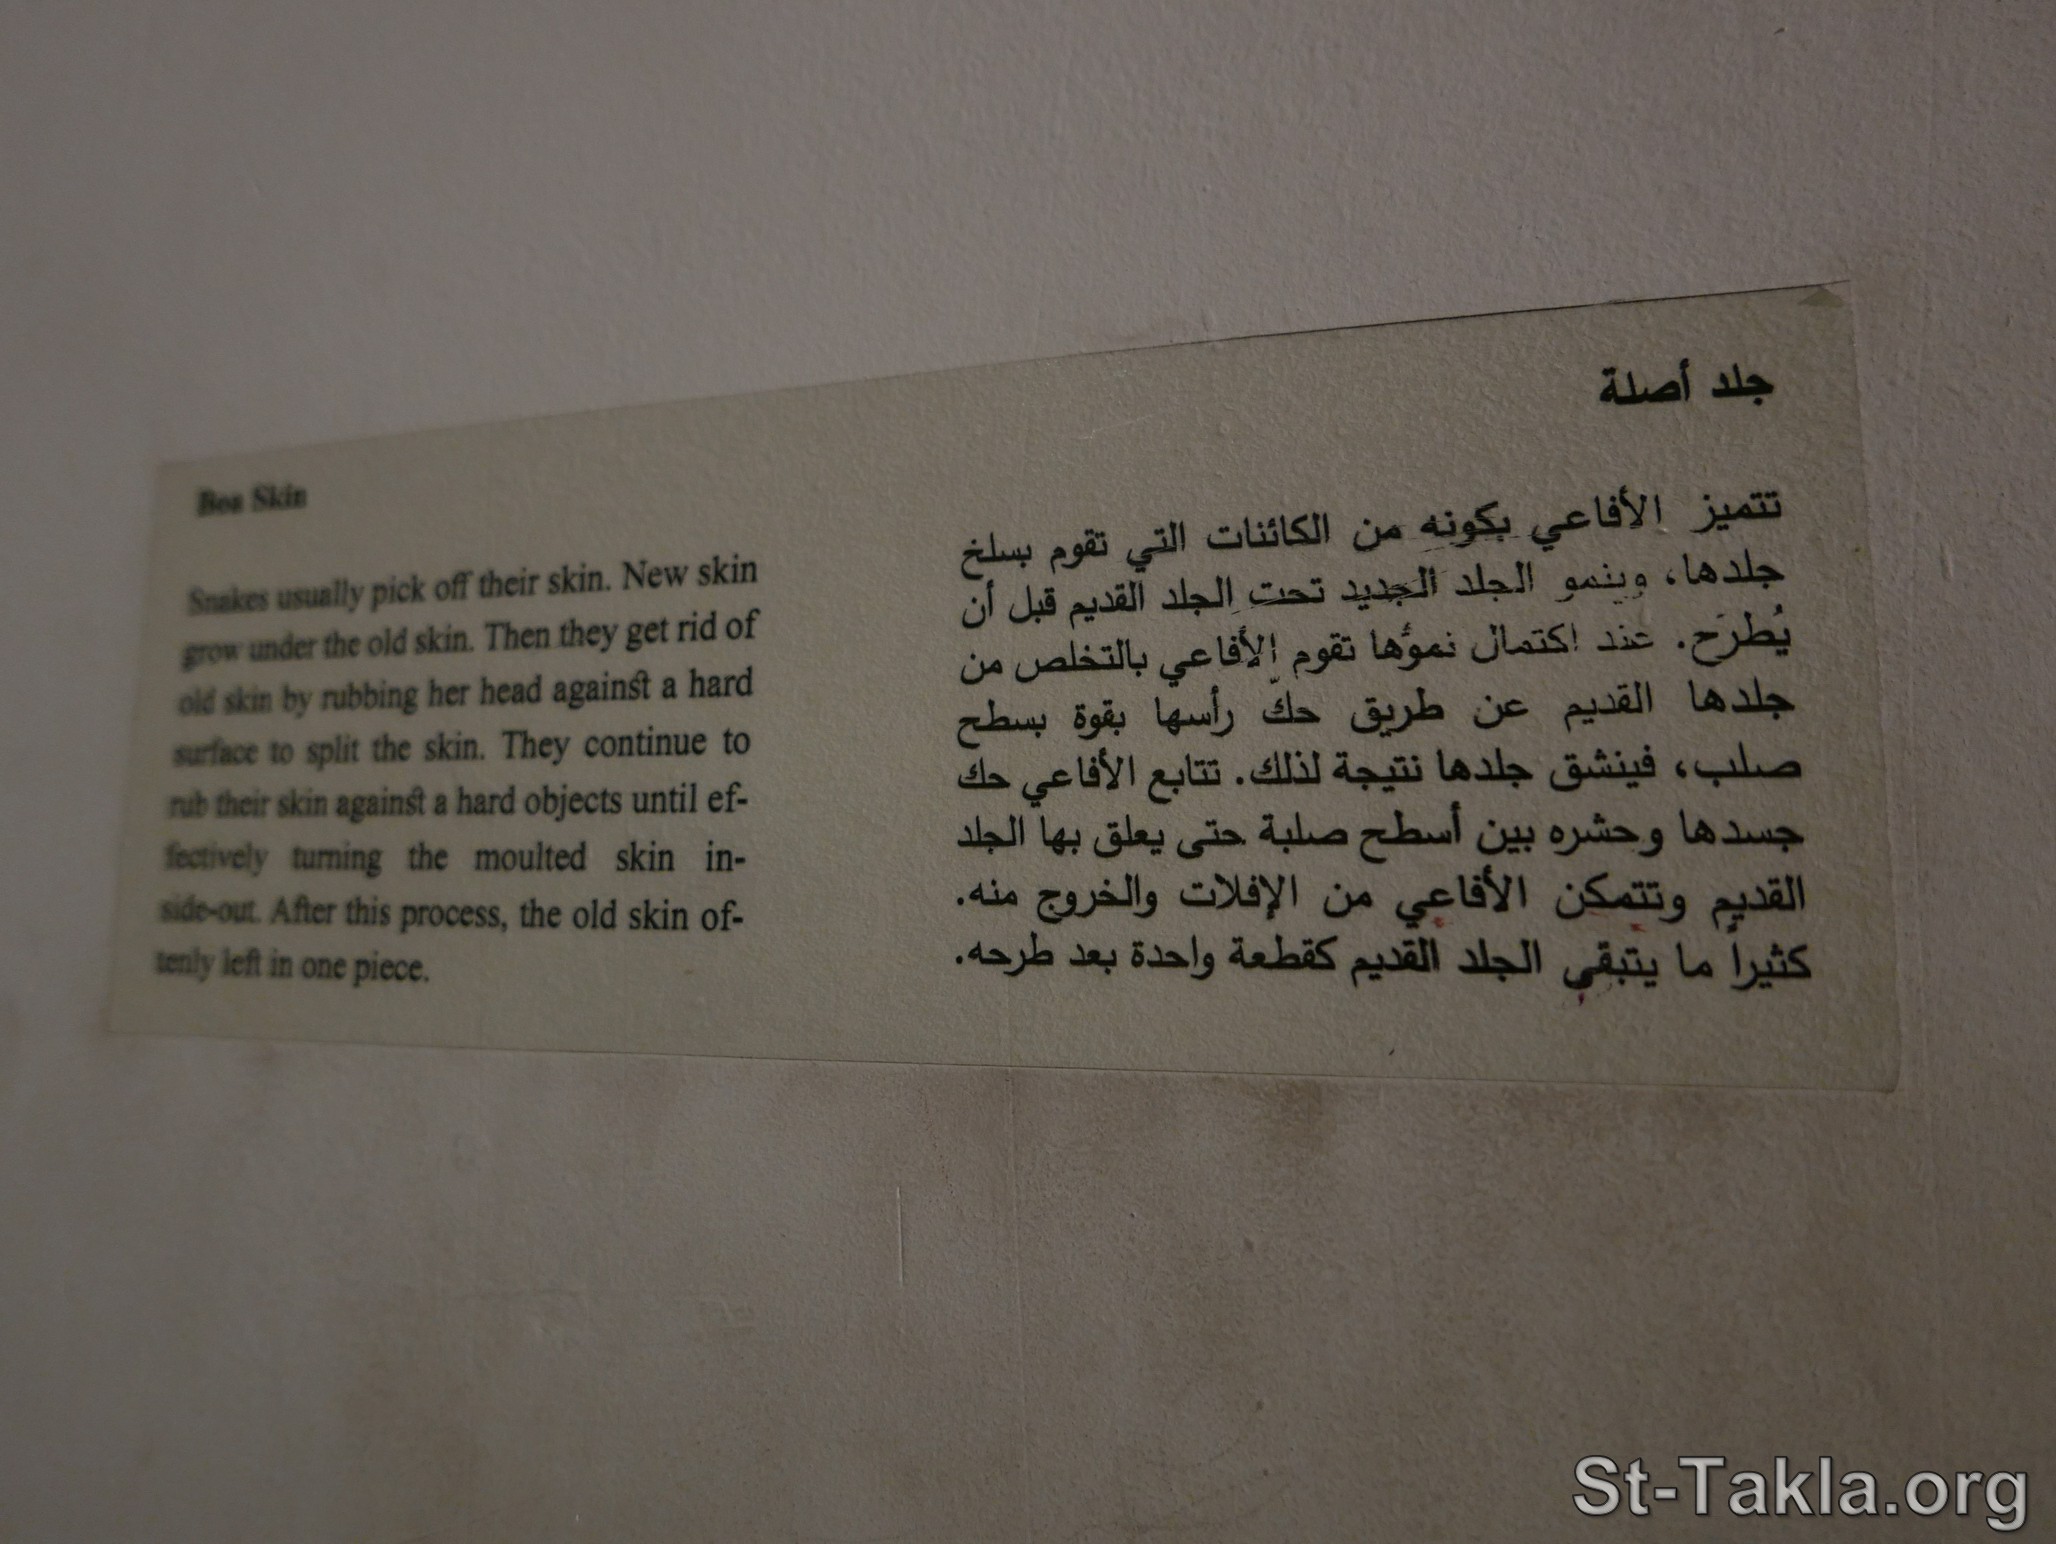 جلد أصلة
تتميز الأفاعي بكونه من الكائنات التي تقوم بسلخ
جلدها، وينمو الجلد الجديد تحت الجلد القديم قبل أن
يُطرَح. عند اكتمال نموّها تقوم الأفاعي بالتخلص من
جلدها القديم عن طريق حكّ رأسها بقوة بسطح
صلب، فينشق جلدها نتيجة لذلك. تتابع الأفاعي حك
جسدها وحشره بين أسطح صلبة حتى يعلق بها الجلد
القديم وتتمكن الأفاعي من الإفلات والخروج منه.
كثيراً ما يتبقى الجلد القديم كقطعة واحدة بعد طرحه.
Boa Skin
Snakes usually pick off their skin. New skin
grow under the old skin. Then they get rid of
old skin by rubbing her head against a hard
surface to split the skin. They continue to
rub their skin against a hard objects until ef-
fectively turning the moulted skin in-
side-out. After this process, the old skin of-
tenly left in one piece.
St-Takla.org